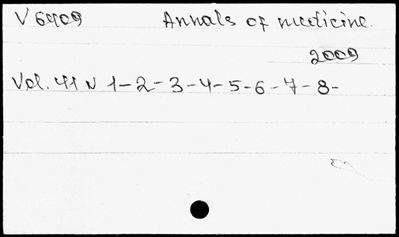 V 6409 Annals of medicine.
2009
Vol. 41 N 1-2-3-4-5-6-7-8-